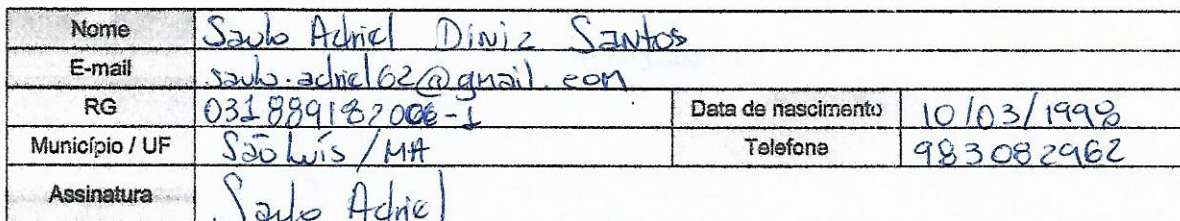 Nome Saulo Adriel Diniz Santos
E-mail saulo.adriel62@gmail.com
RG 031889182006-1 Data de nascimento 10/03/1998
Município / UF São Luís / MA Telefone 983082962
Assinatura Saulo Adriel